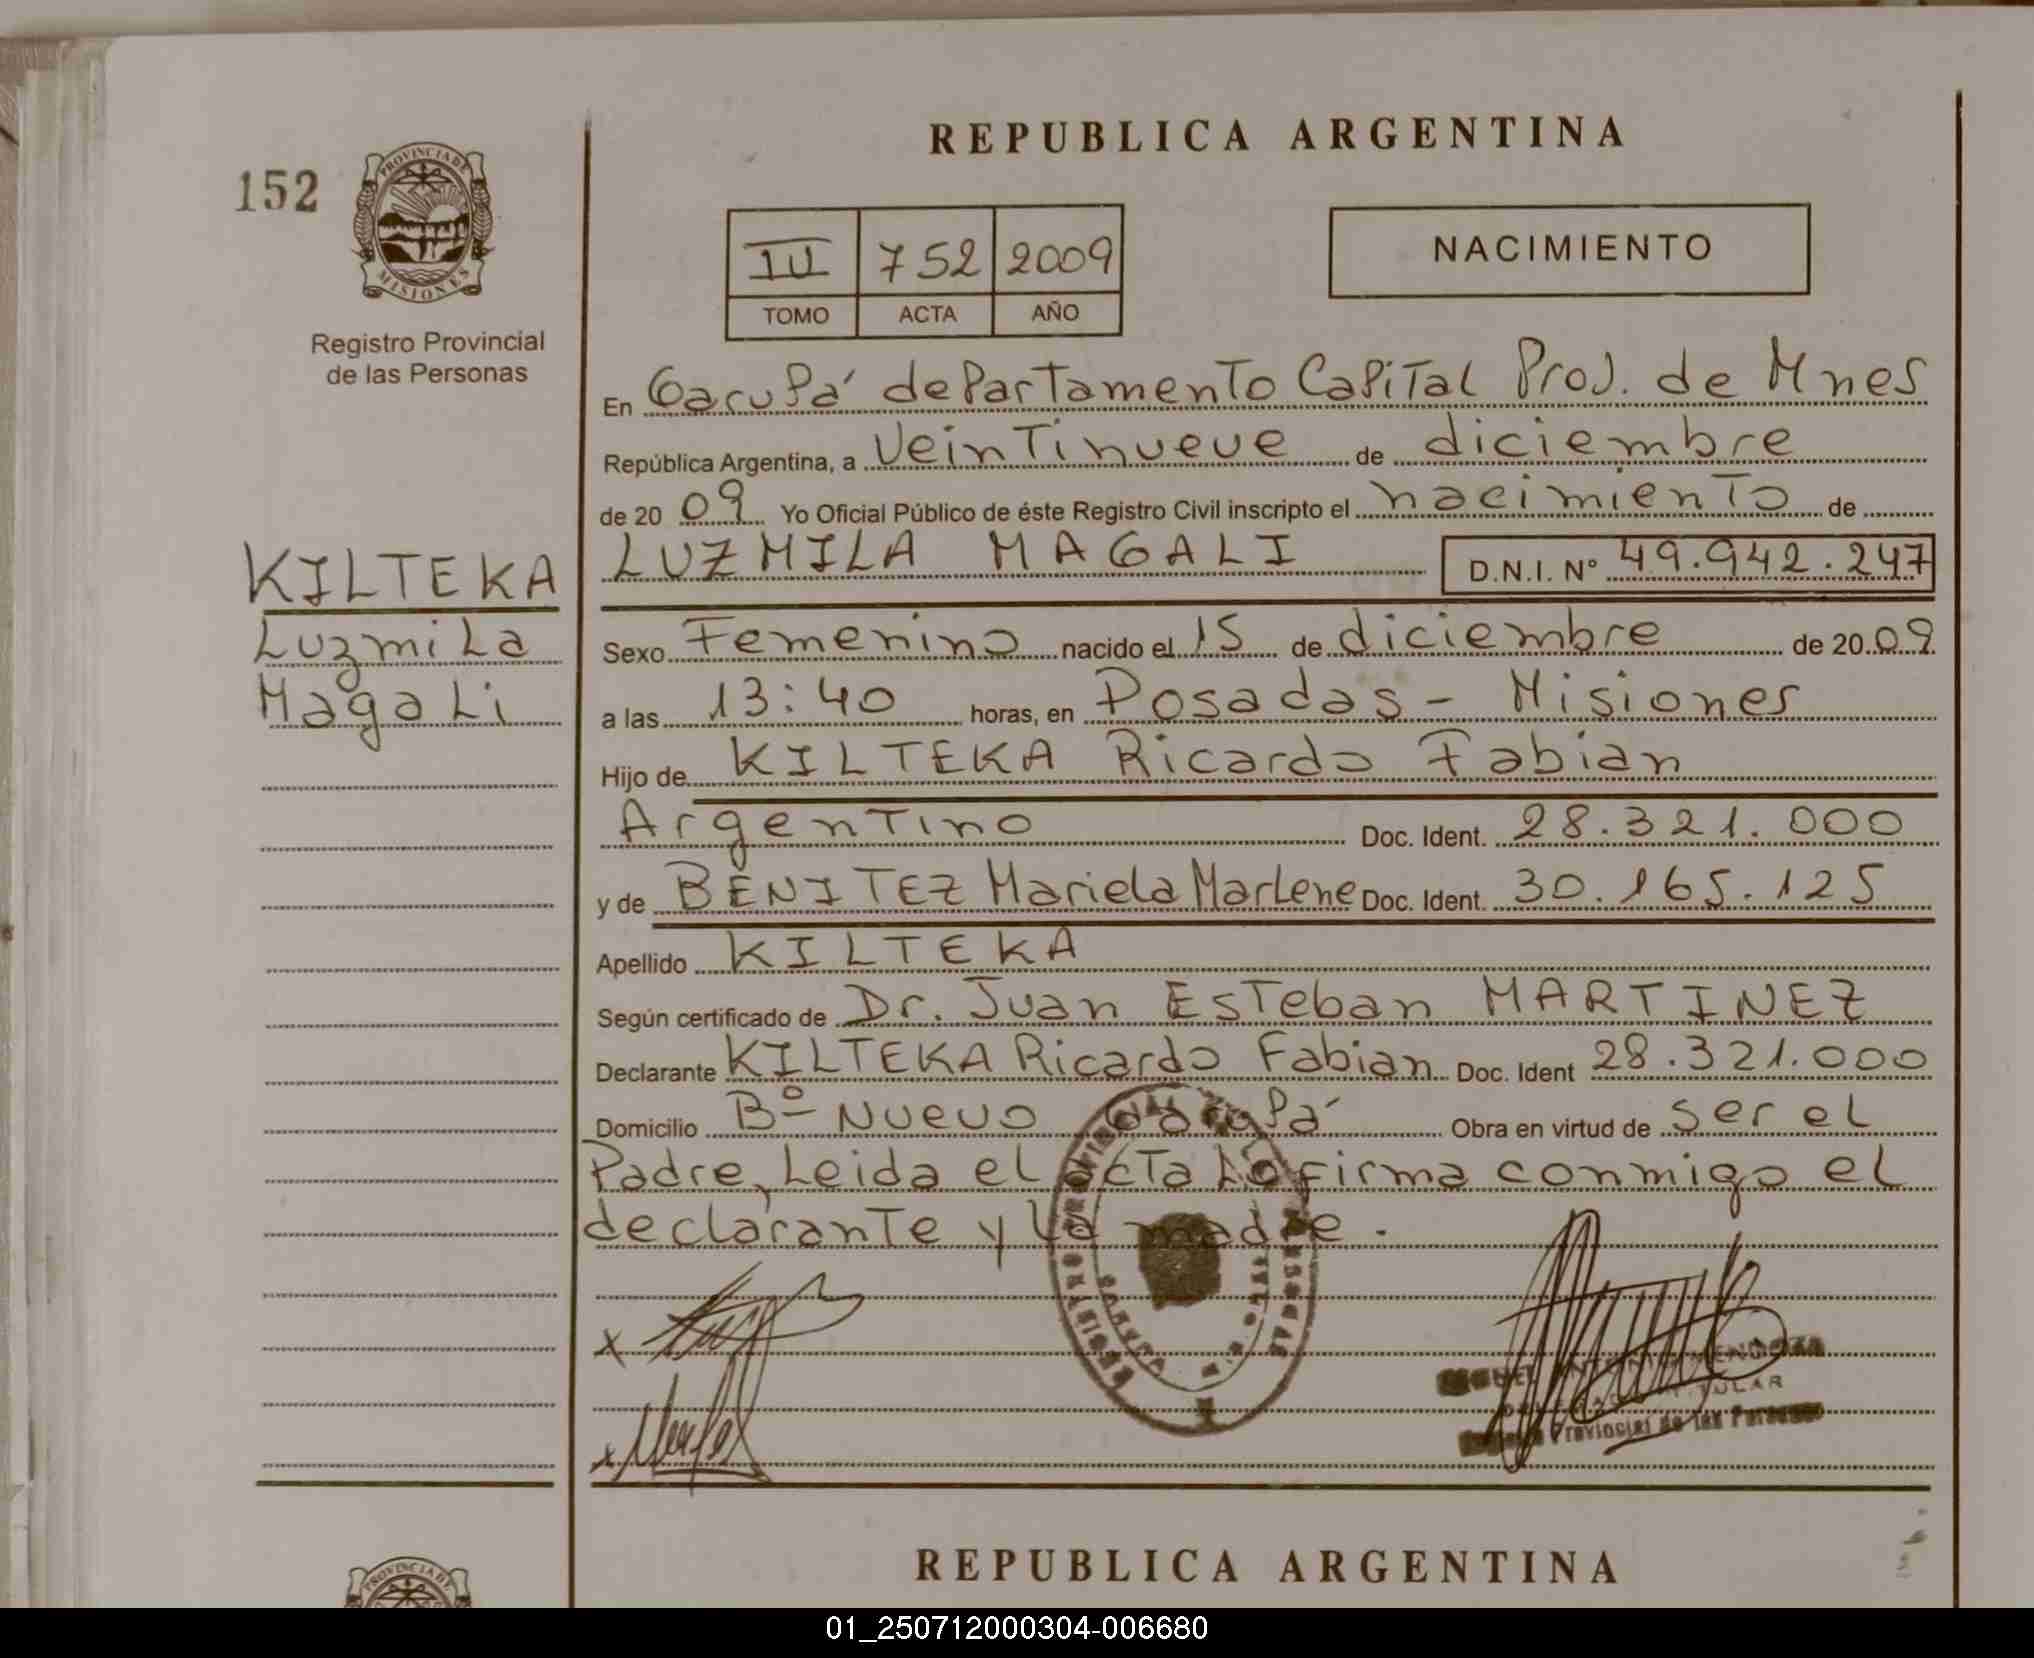 REPUBLICA ARGENTINA
152
PROVINCIA DE
MISIONES
Registro Provincial
de las Personas
III 752 2009
TOMO ACTA AÑO
NACIMIENTO
En Garupá departamento Capital Prov. de Mnes
República Argentina, a Veintinueve de diciembre
de 2009 Yo Oficial Público de éste Registro Civil inscripto el nacimiento de
LUZMILA MAGALI D.N.I. Nº 49.942.247
KILTEKA
Luzmila
Magali
Sexo Femenino nacido el 15 de diciembre de 2009
a las 13:40 horas, en Posadas - Misiones
Hijo de KILTEKA Ricardo Fabian
Argentino Doc. Ident. 28.321.000
y de BENITEZ Mariela Marlene Doc. Ident. 30.165.125
Apellido KILTEKA
Según certificado de Dr. Juan Esteban MARTINEZ
Declarante KILTEKA Ricardo Fabian Doc. Ident 28.321.000
Domicilio Bº Nuevo Garupá Obra en virtud de ser el
Padre, Leida el acta Lo firma conmigo el
declarante y la madre.
x
x
ANTONIO MENDOZA
TITULAR
Provincial de las Personas
REPUBLICA ARGENTINA
PROVINCIA DE
01_250712000304-006680